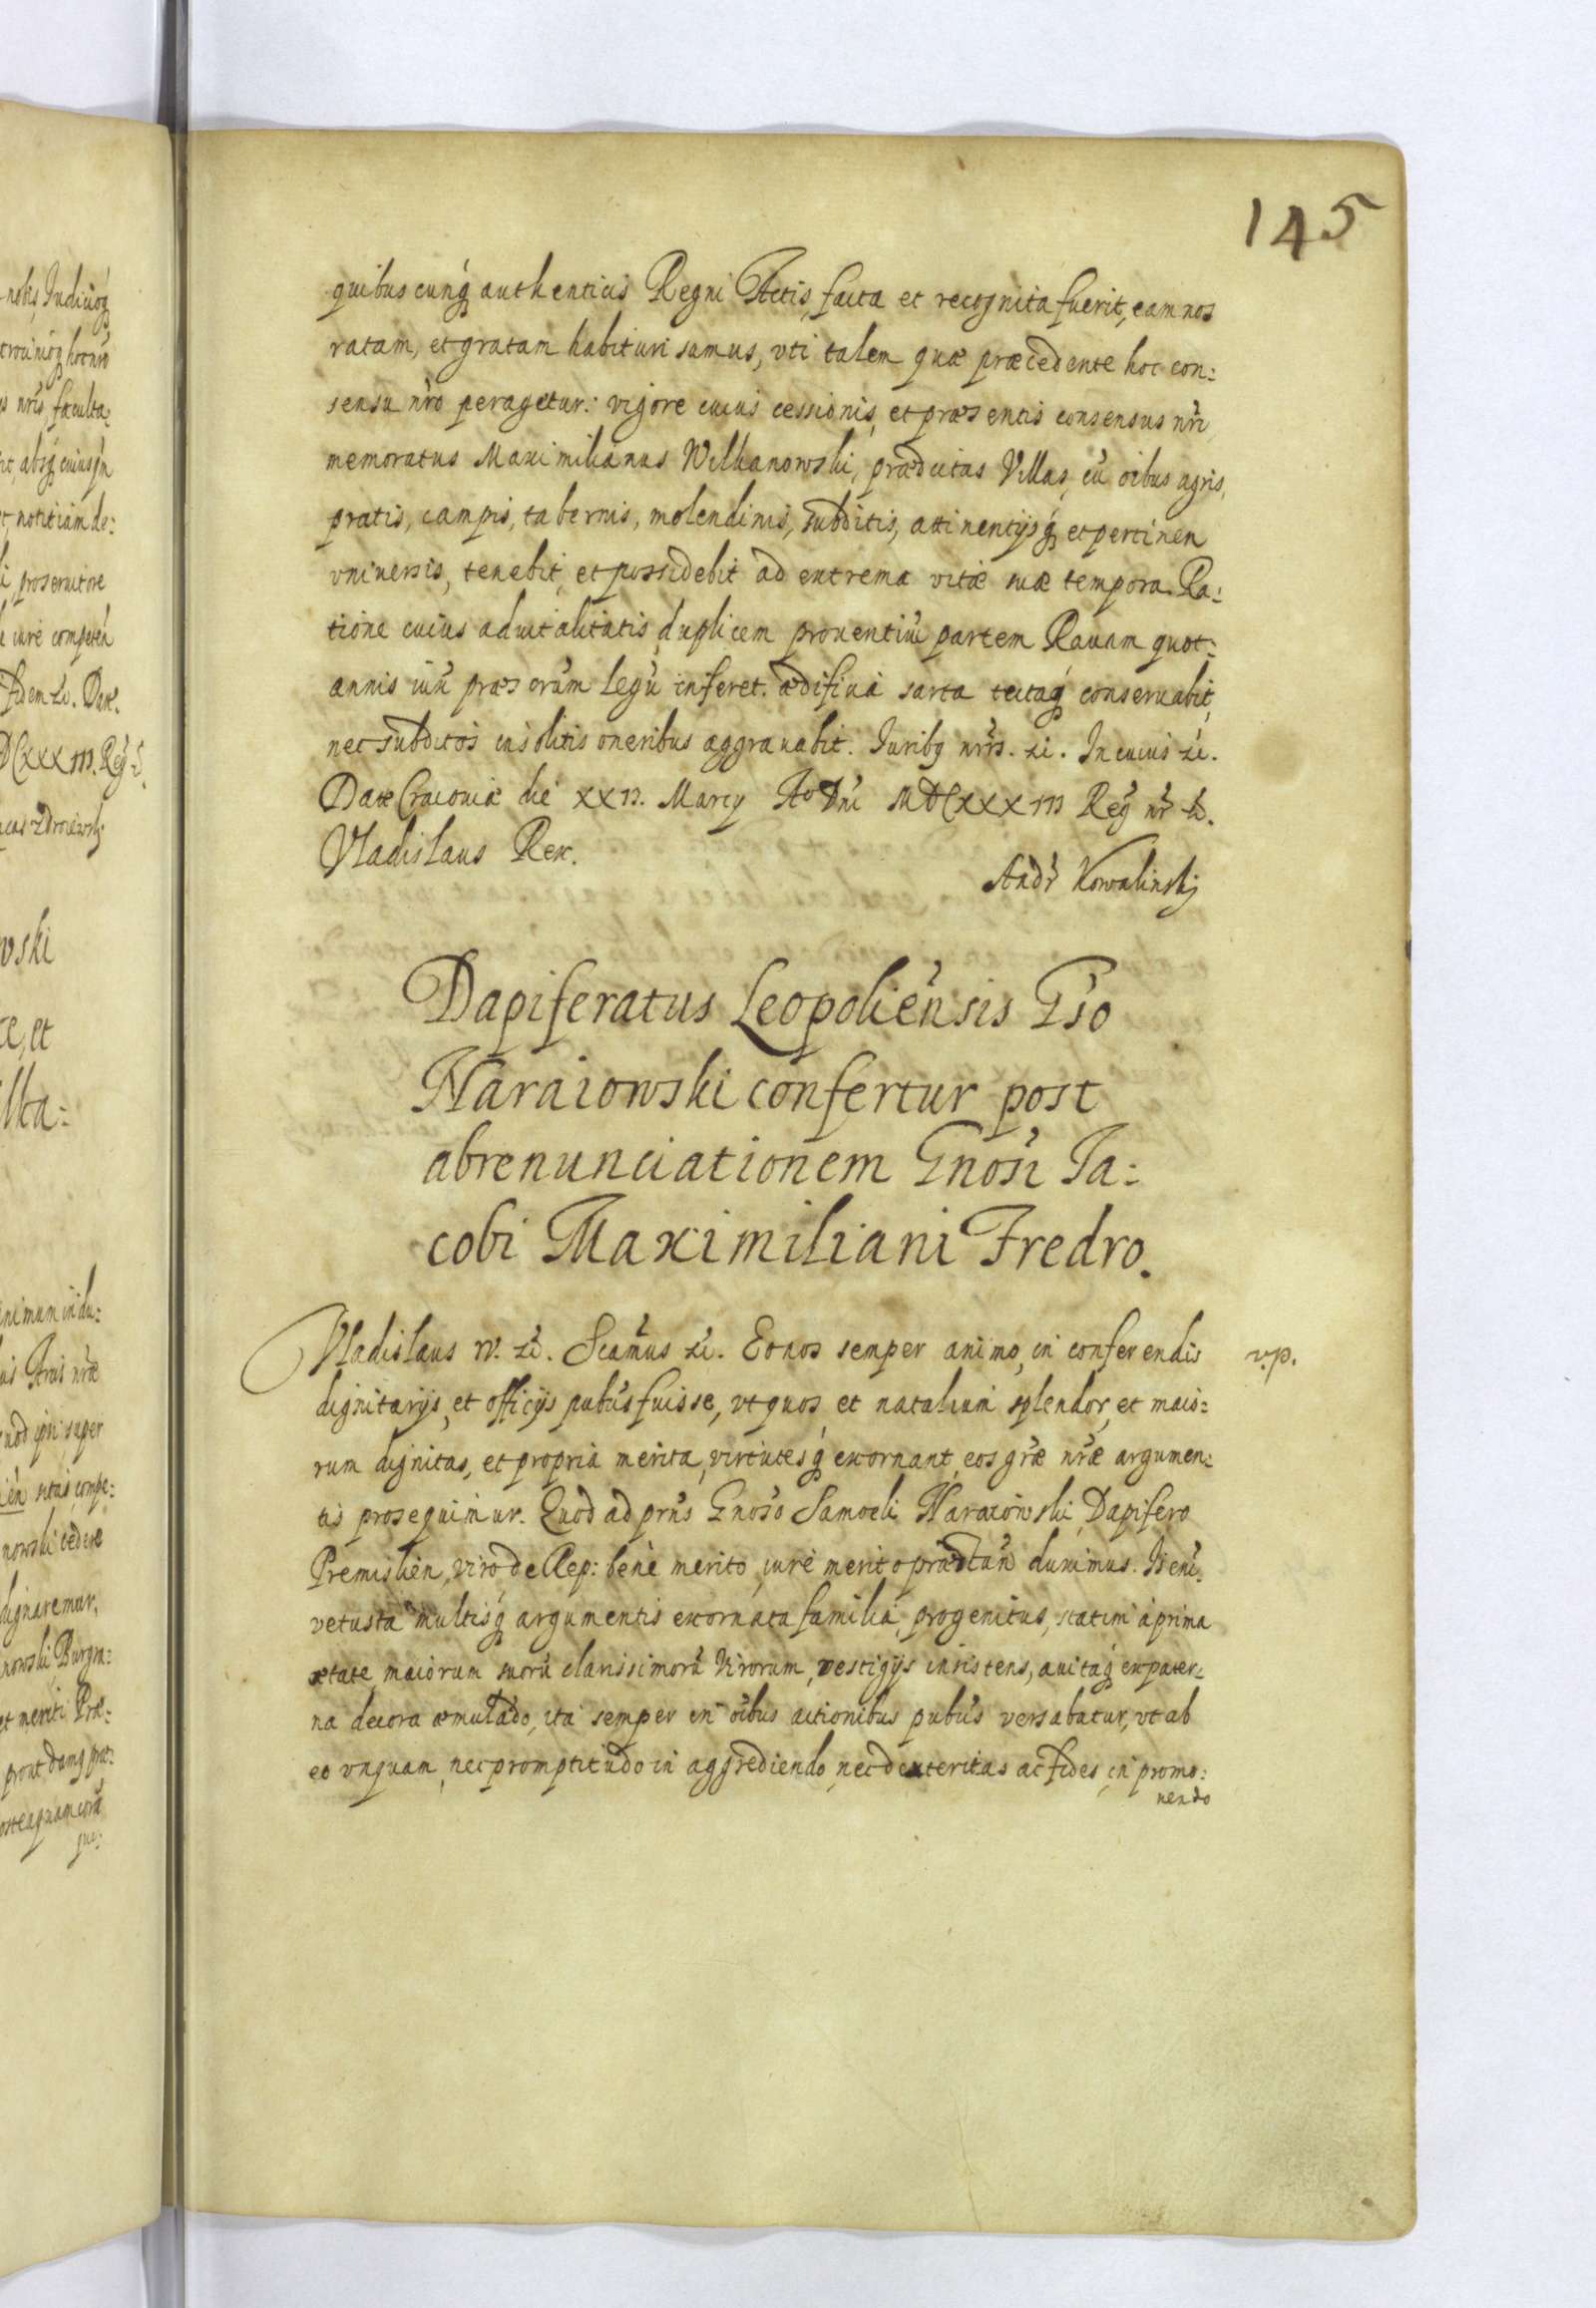 145
quibuscunq́ authenticis Regni Actis, facta et recognita fuerit, eam nos
ratam, et gratam habituri sumus, vti talem quæ præcedente hoc con:
sensu nr̃o peragetur: vigore cuius cessionis, et præsentis consensus nr̃i
memoratus Maximilianus Wilkanowski, prædictas Villas, cũ oĩbus agris,
pratis, campis, tabernis, molendinis, subditis, attinentijsq́ et pertinen
vniuersis, tenebit et possidebit ad extrema vitæ suæ tempora. Ra:
tione cuius aduitalitatis, duplicem prouentuũ partem Rauam quot:
annis iux̃ præscrum̃ Legũ inferet. ædificia sarta tectaq́ conseruabit,
nec subditos insolitis oneribus aggrauabit. Iuribꝫ nrĩs. &c. In cuius &c.
Datæ Cracouiæ die XXII. Marcij Aº Dnĩ MDCXXXIII Reg̃ nr̃ &c.
Vladislaus Rex.
Andr̃ Kowalinskj
Dapiferatus Leopolien̂sis Gſ̃o
Naraiowski confertur post
abrenunciationem Gnosĩ Ia:
cobi Maximiliani Fredro.
Vladislaus IV. &c. Scam̃us &c. Eo nos semper animo, in conferendis
v.p.
dignitarijs, et officijs pubc̃is fuisse, vt quos et natalium splendor, et maio:
rum dignitas, et propria merita, virtutesq́ exornant, eos gr̃æ nr̃æ argumen:
tis prosequimur. Quod ad prñs Gnosõ Samoeli Naraiowski, Dapifero
Premislien, viro de Rep: bene merito, iure merito præstan̂ duximus. Is enĩ
vetusta multisq́ argumentis exornata familia, progenitus, statim à prima
ætate, maiorum suorũ clarissimorũ Virorum, vestigijs insistens, auitaq́ ex pater:
na decora æmulãdo, ita semper in oĩbus actionibus pubc̃is versabatur, vt ab
eo vnquam, nec promptitudo in aggrediendo, nec dexteritas ac fides, in promo:
uendo